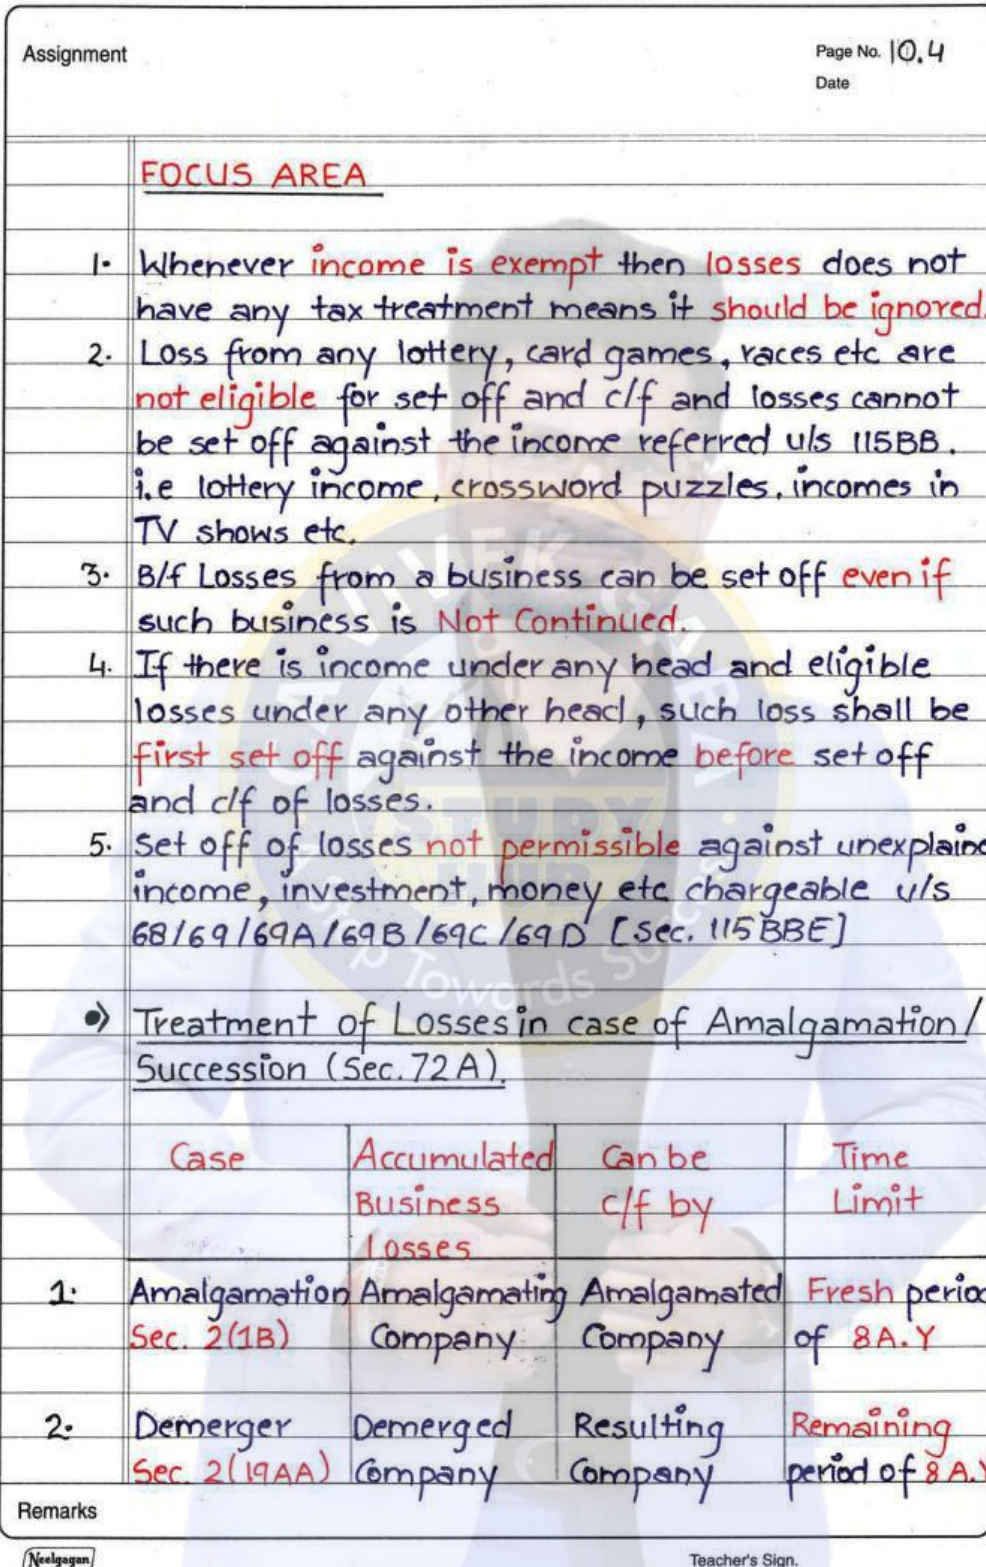 Assignment
Page No. 10.4
Date
FOCUS AREA
1. Whenever income is exempt then losses does not
have any tax treatment means it should be ignored.
2. Loss from any lottery, card games, races etc are
not eligible for set off and c/f and losses cannot
be set off against the income referred u/s 115BB.
i.e lottery income, crossword puzzles, incomes in
TV shows etc.
3. B/f Losses from a business can be set off even if
such business is Not Continued.
4. If there is income under any head and eligible
losses under any other head, such loss shall be
first set off against the income before set off
and c/f of losses.
5. Set off of losses not permissible against unexplaine
income, investment, money etc chargeable u/s
68/69/69A/69B/69C/69D [Sec. 115BBE]
Treatment of Losses in case of Amalgamation/
Succession (Sec. 72A).
Case Accumulated Can be Time
Business c/f by Limit
Losses
1. Amalgamation Amalgamating Amalgamated Fresh perio
Sec. 2(1B) Company Company of 8 A.Y
2. Demerger Demerged Resulting Remaining
Sec. 2(19AA) Company Company period of 8 A.Y
Remarks
Neelgagan
Teacher's Sign.
CA VIVEK GABA
STUDY
HUB
A Step Towards Success